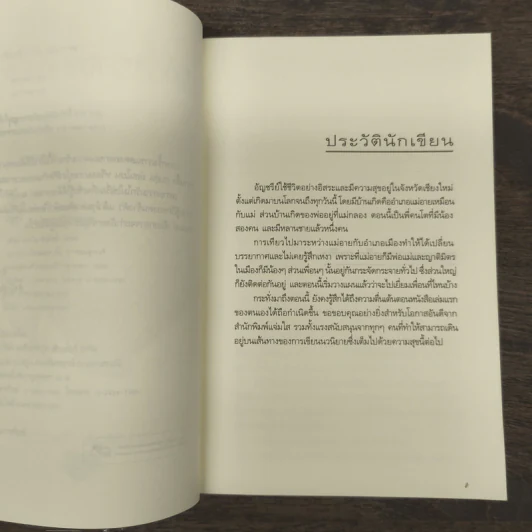 ประวัตินักเขียน
อัญชรีย์ใช้ชีวิตอย่างอิสระและมีความสุขอยู่ในจังหวัดเชียงใหม่
ตั้งแต่เกิดมาบนโลกจนถึงทุกวันนี้ โดยมีบ้านเกิดคืออำเภอแม่อายเหมือน
กับแม่ ส่วนบ้านเกิดของพ่ออยู่ที่แม่กลอง ตอนนี้เป็นพี่คนโตที่มีน้อง
สองคน และมีหลานชายแล้วหนึ่งคน
การเทียวไปมาระหว่างแม่อายกับอำเภอเมืองทำให้ได้เปลี่ยน
บรรยากาศและไม่เคยรู้สึกเหงา เพราะที่แม่อายก็มีพ่อแม่และญาติมิตร
ในเมืองก็มีน้องๆ ส่วนเพื่อนๆ นั้นอยู่กันกระจัดกระจายทั่วไป ซึ่งส่วนใหญ่
ก็ยังติดต่อกันอยู่ และตอนนี้เริ่มวางแผนแล้วว่าจะไปเยี่ยมเพื่อนที่ไหนบ้าง
กระทั่งมาถึงตอนนี้ ยังคงรู้สึกได้ถึงความตื่นเต้นตอนหนังสือเล่มแรก
ของตนเองได้ถือกำเนิดขึ้น ขอขอบคุณอย่างยิ่งสำหรับโอกาสอันดีจาก
สำนักพิมพ์แจ่มใส รวมทั้งแรงสนับสนุนจากทุกๆ คนที่ทำให้สามารถเดิน
อยู่บนเส้นทางของการเขียนนวนิยายซึ่งเต็มไปด้วยความสุขนี้ต่อไป